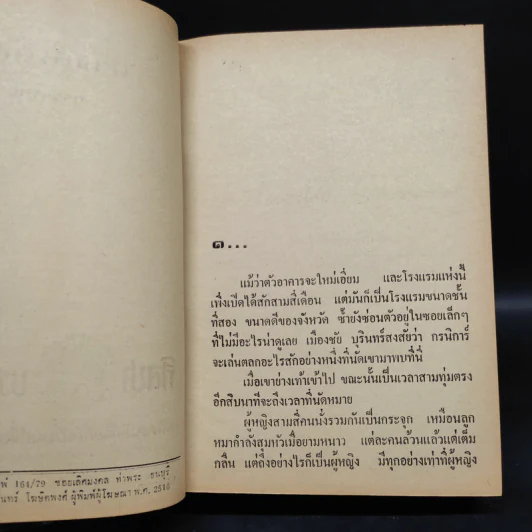 พ์ 161/79 ซอยเลิศมงคล ท่าพระ ธนบุรี
นทร์ โฆษิตพงศ์ ผู้พิมพ์ผู้โฆษณา พ.ศ. 2516
๑...
แม้ว่าตัวอาคารจะใหม่เอี่ยม และโรงแรมแห่งนี้
เพิ่งเปิดได้สักสามสี่เดือน แต่มันก็เป็นโรงแรมขนาดชั้น
ที่สอง ขนาดดีของจังหวัด ซ้ำยังซ่อนตัวอยู่ในซอยเล็กๆ
ที่ไม่มีอะไรน่าดูเลย เมืองชัย บุรินทร์สงสัยว่า กรนิการ์
จะเล่นตลกอะไรสักอย่างหนึ่งที่นัดเขามาพบที่นี่
เมื่อเขาย่างเท้าเข้าไป ขณะนั้นเป็นเวลาสามทุ่มตรง
อีกสิบนาทีจะถึงเวลาที่นัดหมาย
ผู้หญิงสามสี่คนนั่งรวมกันเป็นกระจุก เหมือนลูก
หมากำลังสุมหัวเมื่อยามหนาว แต่ละคนล้วนแล้วแต่เต็ม
กลืน แต่ถึงอย่างไรก็เป็นผู้หญิง มีทุกอย่างเท่าที่ผู้หญิง